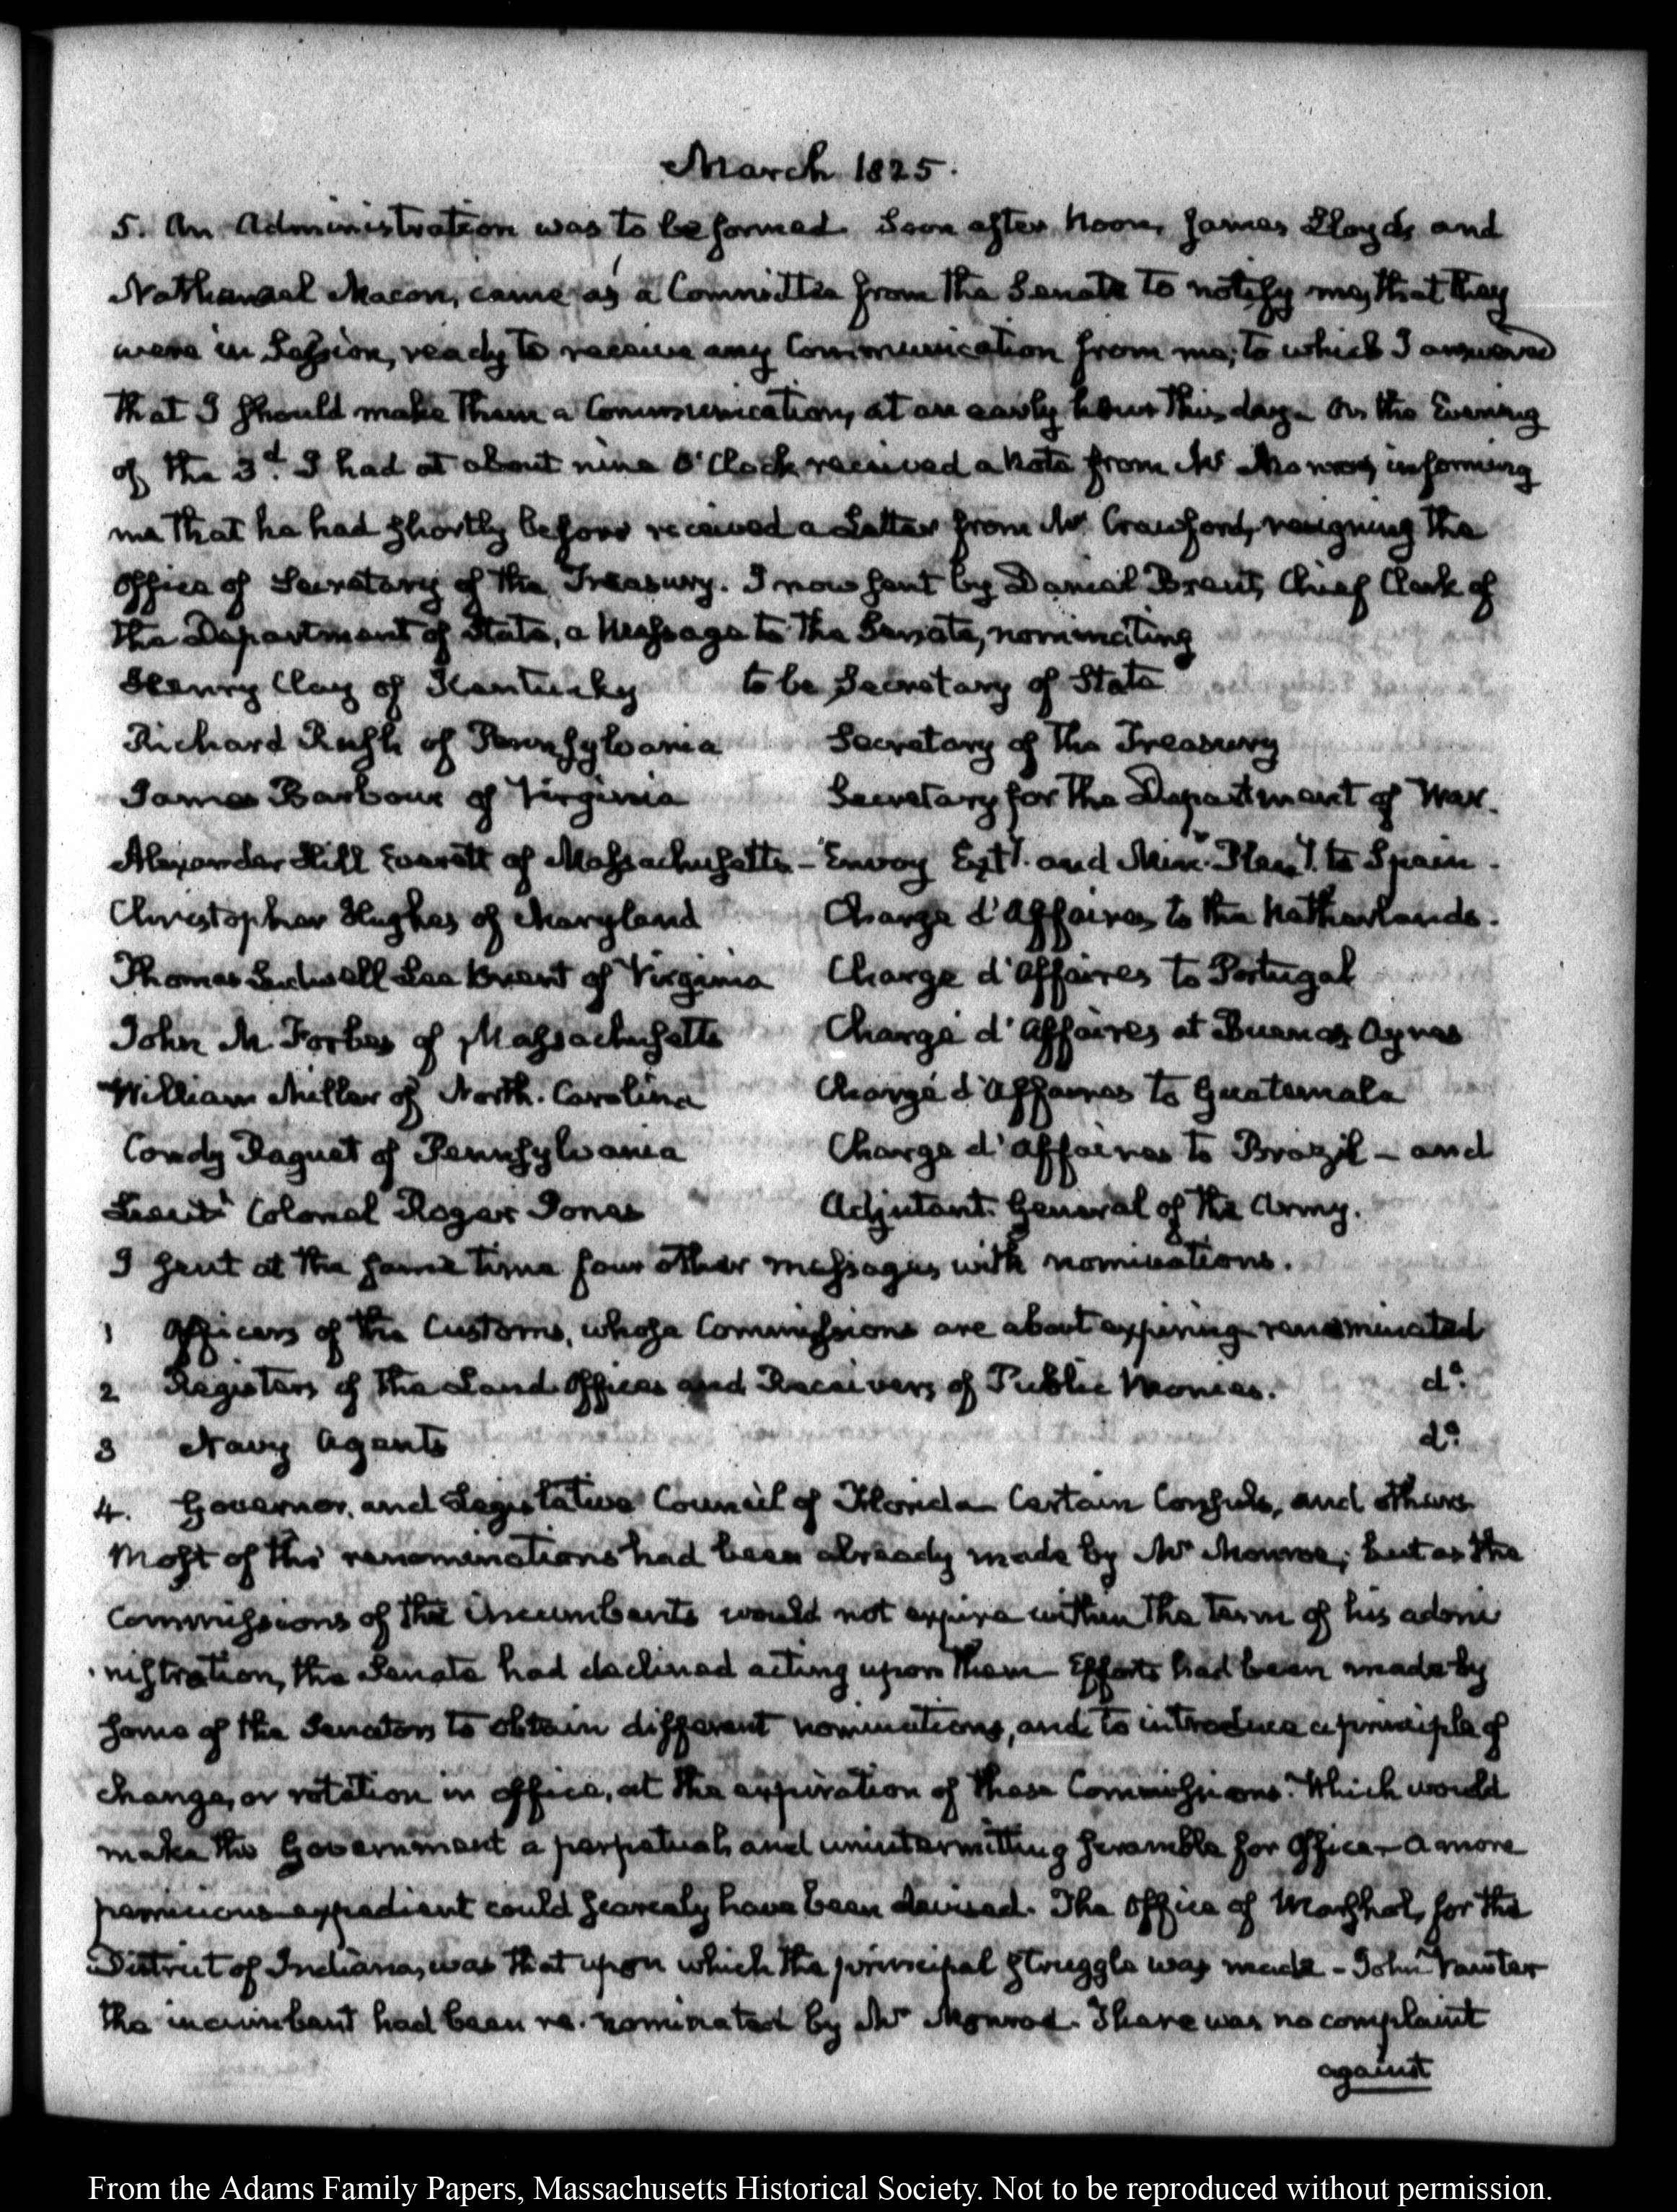 March 1825.
5. An Administration was to be formed. Soon after Noon, James Lloyd, and
Nathaniel Macon, came as a Committee from the Senate to notify me, that they
were in Session, ready to receive any Communication from me; to which I answered
that I should make them a Communication, at an early hour this day. On the Evening
of the 3.d I had at about nine O'Clock received a Note from Mr Monroe, informing
me that he had shortly before received a Letter from Mr Crawford, resigning the
Office of Secretary of the Treasury. I now sent by Daniel Brent, Chief Clerk of
the Department of State, a Message to the Senate, nominating
Henry Clay of Kentucky to be Secretary of State
Richard Rush of Pennsylvania Secretary of the Treasury
James Barbour of Virginia Secretary for the Department of War.
Alexander Hill Everett of Massachusetts – Envoy Ext.y and Minr Plenty. to Spain.
Christopher Hughes of Maryland Chargé d'Affaires to the Netherlands.
Thomas Ludwell Lee Brent of Virginia Chargé d'Affaires to Portugal
John M. Forbes of Massachusetts Chargé d'Affaires at Buenos Ayres
William Miller of North-Carolina Chargé d'Affaires to Guatemala
Condy Raguet of Pennsylvania Chargé d'Affaires to Brazil – and
Lieutt Colonel Roger Jones Adjutant General of the Army.
I sent at the same time four other messages with nominations.
1 Officers of the Customs, whose Commissions are about expiring renominated
2 Registers of the Land Offices and Receivers of Public Monies. do.
3 Navy Agents do.
4. Governor, and Legislative Council of Florida Certain Consuls, and others
Most of the renominations had been already made by Mr Monroe; but as the
Commissions of the Incumbents would not expire within the term of his admi
nistration, the Senate had declined acting upon them Efforts had been made by
some of the Senators to obtain different nominations, and to introduce a principle of
change, or rotation in office, at the expiration of these Commissions: Which would
make the Government a perpetual, and unintermitting scramble for Office – A more
pernicious expedient could scarcely have been devised. The Office of Marshal, for the
District of Indiana, was that upon which the principal struggle was made – John Vawter
the incumbent had been re-nominated by Mr Monroe. There was no complaint
against
From the Adams Family Papers, Massachusetts Historical Society. Not to be reproduced without permission.